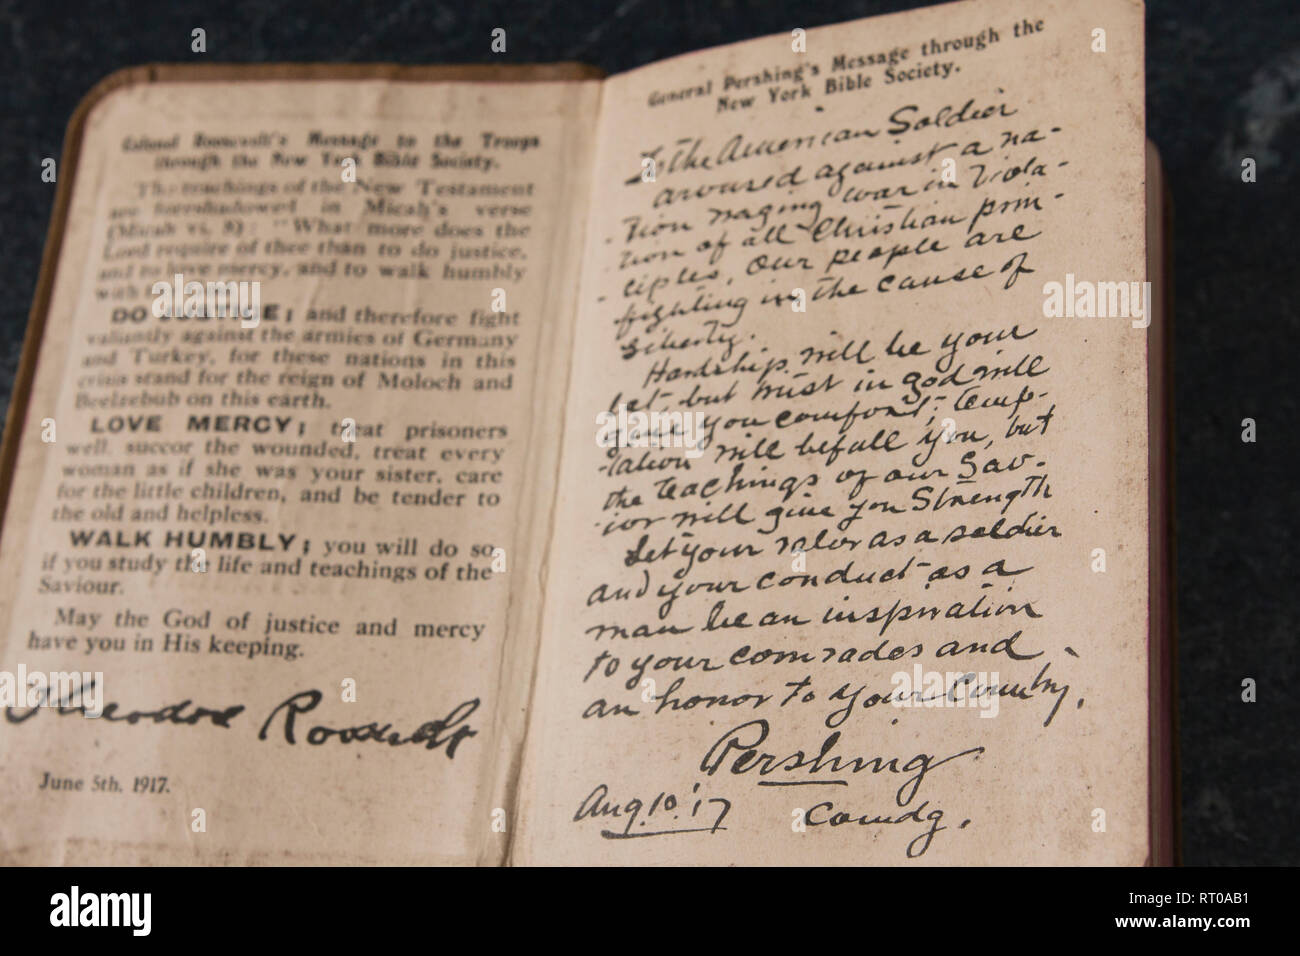 Colonel Roosevelt's Message to the Troops
through the New York Bible Society.
The teachings of the New Testament
are foreshadowed in Micah's verse
(Micah vi. 8): "What more does the
Lord require of thee than to do justice,
and to love mercy, and to walk humbly
with
DO JUSTICE; and therefore fight
valiantly against the armies of Germany
and Turkey, for these nations in this
crisis stand for the reign of Moloch and
Beelzebub on this earth.
LOVE MERCY; treat prisoners
well, succor the wounded, treat every
woman as if she was your sister, care
for the little children, and be tender to
the old and helpless.
WALK HUMBLY; you will do so
if you study the life and teachings of the
Saviour.
May the God of justice and mercy
have you in His keeping.
Theodore Roosevelt
June 5th, 1917.
General Pershing's Message through the
New York Bible Society.
To the American Soldier
aroused against a na-
tion waging war in viola-
tion of all Christian prin-
ciples, Our people are
fighting in the cause of
Liberty.
Hardship will be your
lot, but trust in God will
give you comfort; temp-
tation will befall you, but
the teachings of our Sav-
ior will give you Strength
Let your valor as a soldier
and your conduct as a
man be an inspiration
to your comrades and
an honor to your Country.
Pershing
Aug. 10 '17 Comdg.
alamy
Image ID: RT0AB1
www.alamy.com